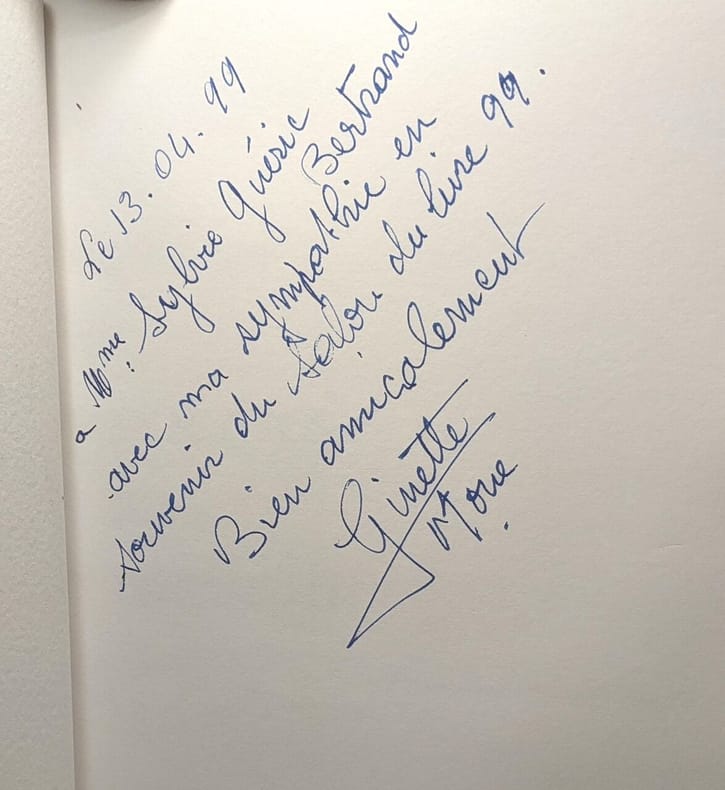 Le 13.04.99
a Mme. Sylvie Guéric
Bertrand
avec ma sympathie en
souvenir du Salon du livre 99.
Bien amicalement
Ginette